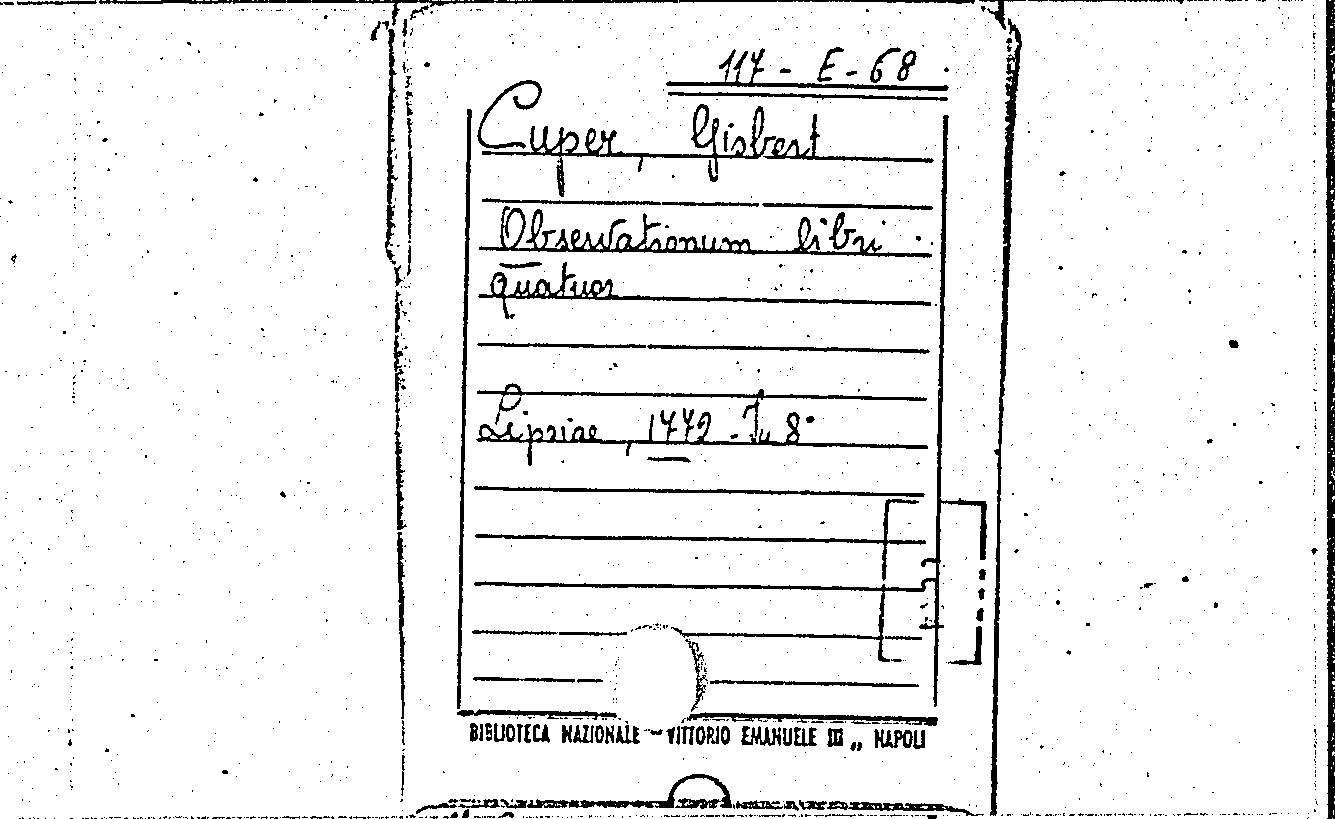 117 - E - 68
Cuper, Gisbert
Observationum libri
quatuor
Lipsiae, 1772 - In 8°
BIBLIOTECA NAZIONALE "VITTORIO EMANUELE III" NAPOLI